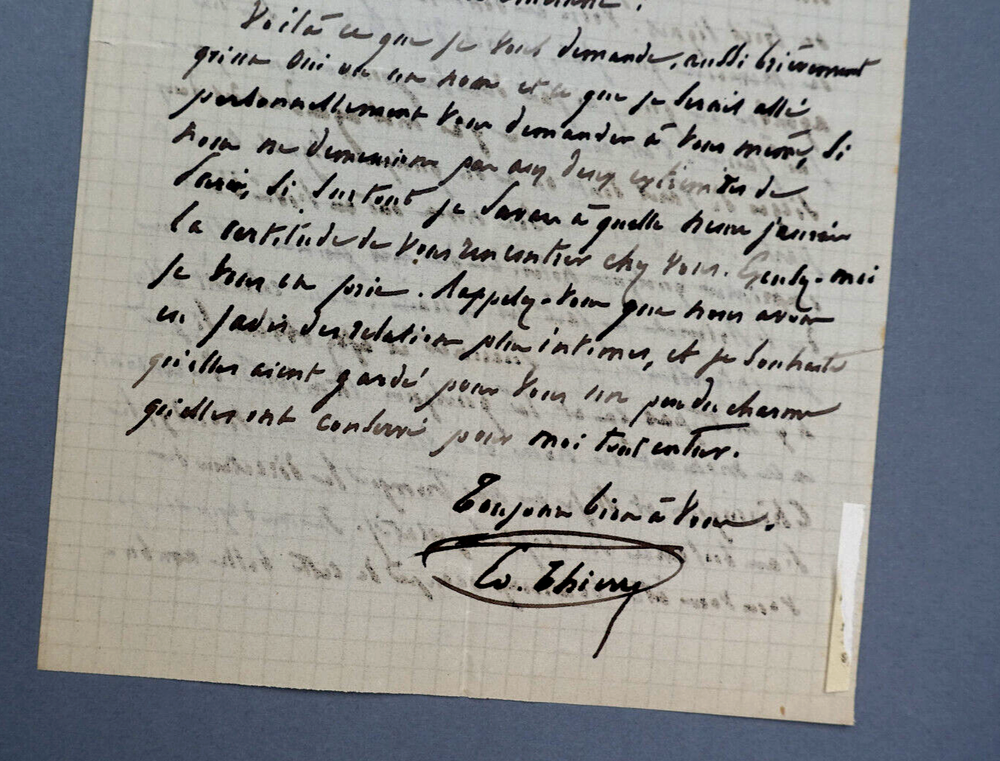 Voilà ce que je vous demande, aussi brièvement
que oui ou un non et ce que je serais allé
personnellement vous demander à vous même, si
nous ne demeurions pas aux deux extrémités de
Paris, si surtout je savais à quelle heure j'aurais
la certitude de vous rencontrer chez vous. -moi
je vous en prie. Rappelez-vous que nous avons
eu jadis des relations plus intimes, et je souhaite
qu'elles aient gardé pour vous un peu du charme
qu'elles ont conservé pour moi tout entier.
Toujours bien à vous.
Thierry